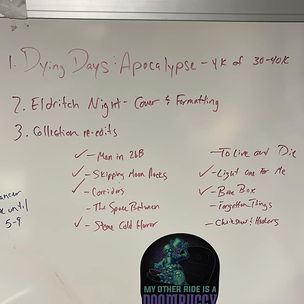 1. Dying Days: Apocalypse - 4K of 30-40K
2. Eldritch Night - Cover & Formatting
3. Collection re-edits
✓ - Man in 26B
✓ - Skipping Moon Rocks
✓ - Corridors
- The Space Between
✓ - Stone Cold Horror
- To Live and Die
✓ - Light One For Me
✓ - Bone Box
- Forgotten Things
- & Hookers
until
5-9
MY OTHER RIDE IS A
DOOMBUGGY